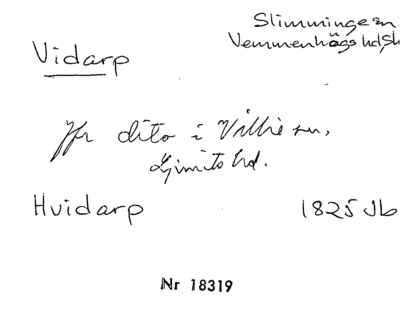 Slimminge sn
Vemmenhögs hd, Sk
Vidarp
Jfr dito i Villie sn,
Ljunits hd.
Hvidarp 1825 Jb
Nr 18319